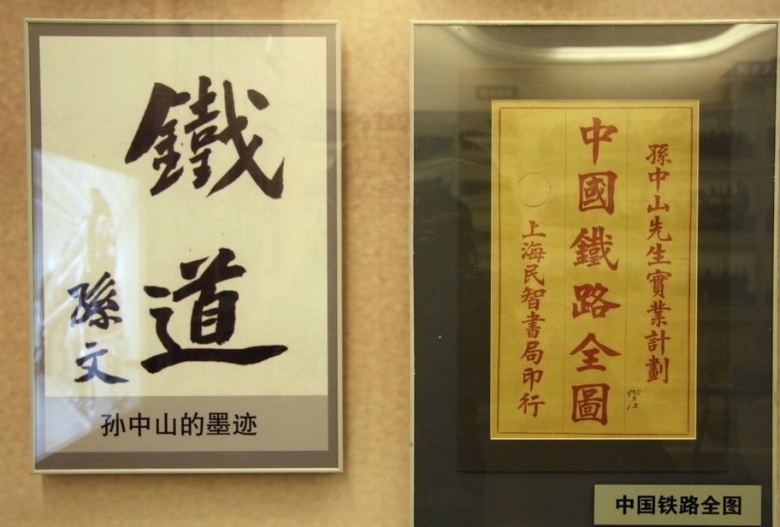 鐵道
孫文
孙中山的墨迹
孫中山先生實業計劃
中國鐵路全圖
上海民智書局印行
中国铁路全图